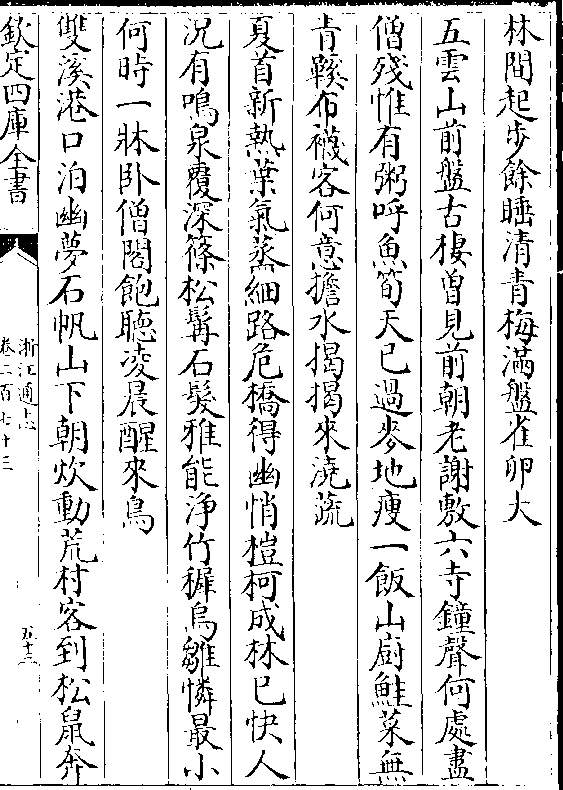 林間起步餘睡清青梅滿盤雀卵大
五雲山前盤古棲曾見前朝老謝敷六寺鐘聲何處盡
僧殘惟有粥呼魚筍天已過麥地瘦一飯山廚鮭菜無
青鞵布襪客何意擔水揭揭來澆蔬
夏首新熟葉氣蒸細路危橋得幽悄榿柯成林已快人
況有鳴泉覆深篠松髯石髮雅能淨竹穉烏雛憐最小
何時一牀卧僧閣飽聽凌晨醒來鳥
雙溪港口泊幽夢石帆山下朝炊動荒村客到松鼠奔
欽定四庫全書
浙江通志
卷二百七十三
五十三